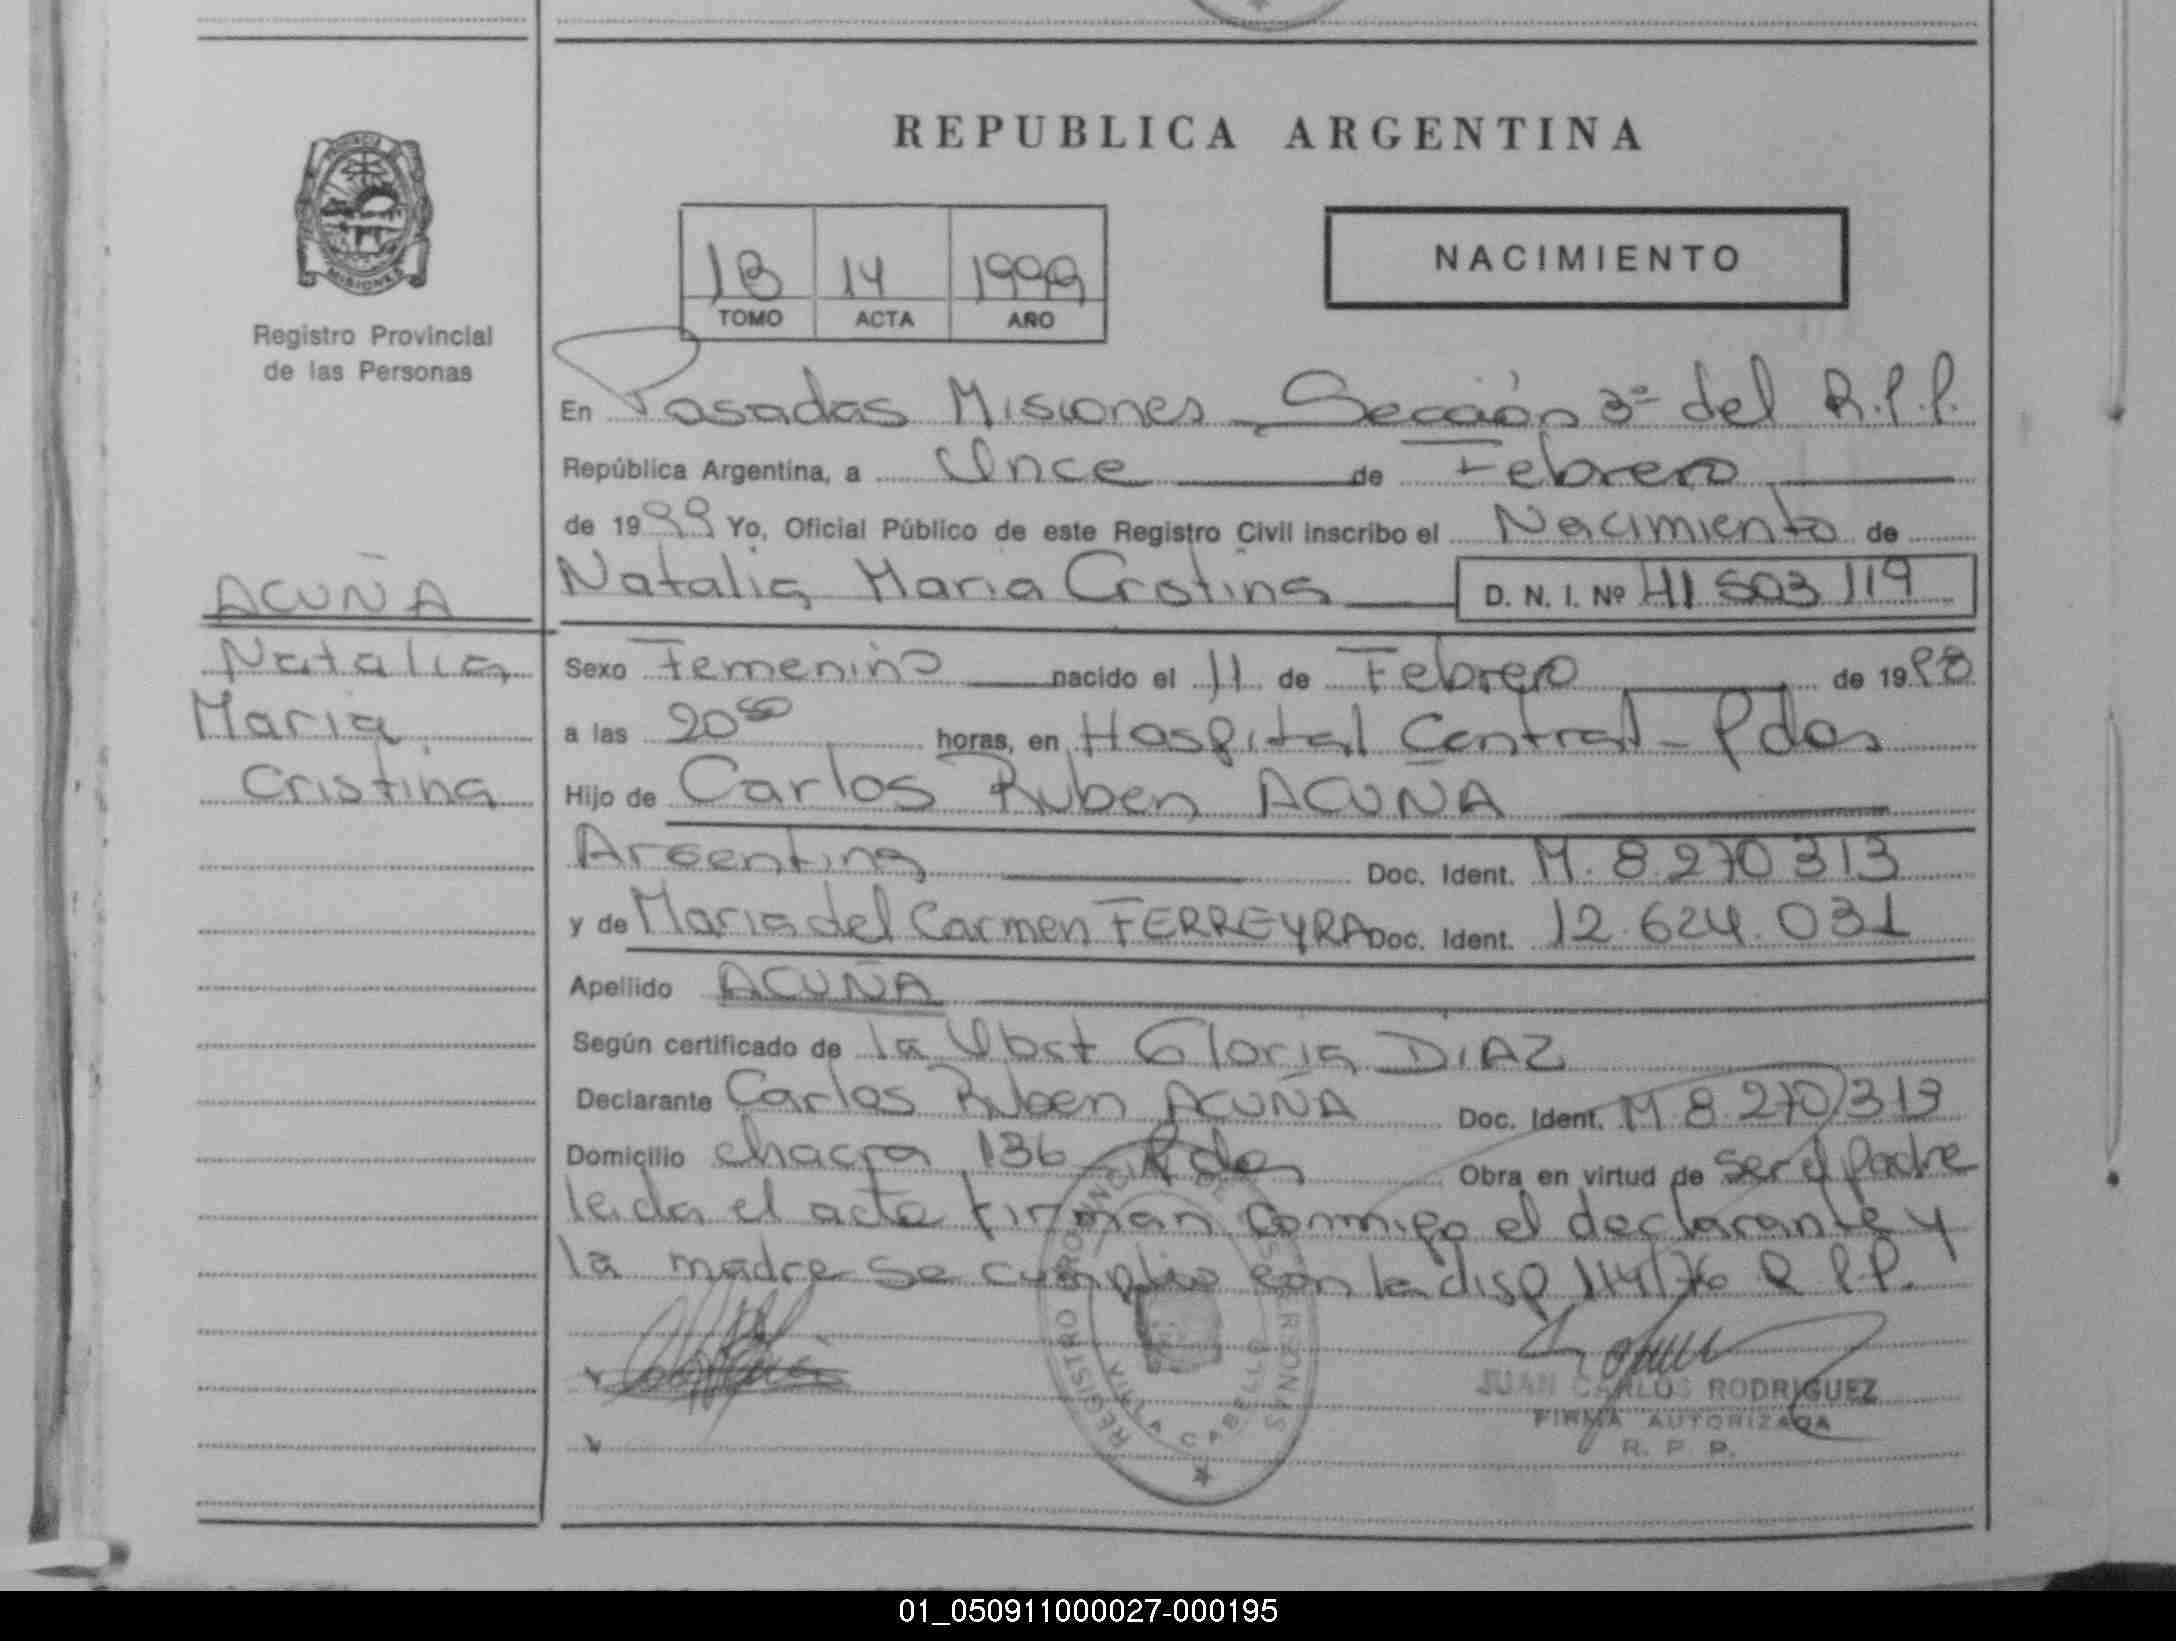 REPUBLICA ARGENTINA
PROVINCIA
MISIONES
Registro Provincial
de las Personas
1B 14 1999
TOMO ACTA AÑO
NACIMIENTO
En Posadas Misiones Sección 3º del R.P.P.
República Argentina, a Once de Febrero
de 1999 Yo, Oficial Público de este Registro Civil inscribo el Nacimiento de
Natalia Maria Crstina D. N. I. Nº 41 503 119
ACUÑA
Natalia
Maria
Cristina
Sexo Femenino nacido el 11 de Febrero de 1998
a las 20 50 horas, en Hospital Central - Pdas
Hijo de Carlos Ruben ACUÑA
Argentina Doc. Ident. M. 8.270 313
y de Maria del Carmen FERREYRA Doc. Ident. 12.624.031
Apellido ACUÑA
Según certificado de la Obst Gloria DIAZ
Declarante Carlos Ruben ACUÑA Doc. Ident. M 8.270 313
Domicilio chacra 136 Pdas Obra en virtud de ser el padre
leida el acta firman conmigo el declarante y
la madre se cumplio con la disp 114/76 R P.P.
REGISTRO PROVINCIAL DE LAS PERSONAS
VILLA CABELLO
JUAN CARLOS RODRIGUEZ
FIRMA AUTORIZADA
R. P. P.
01_050911000027-000195